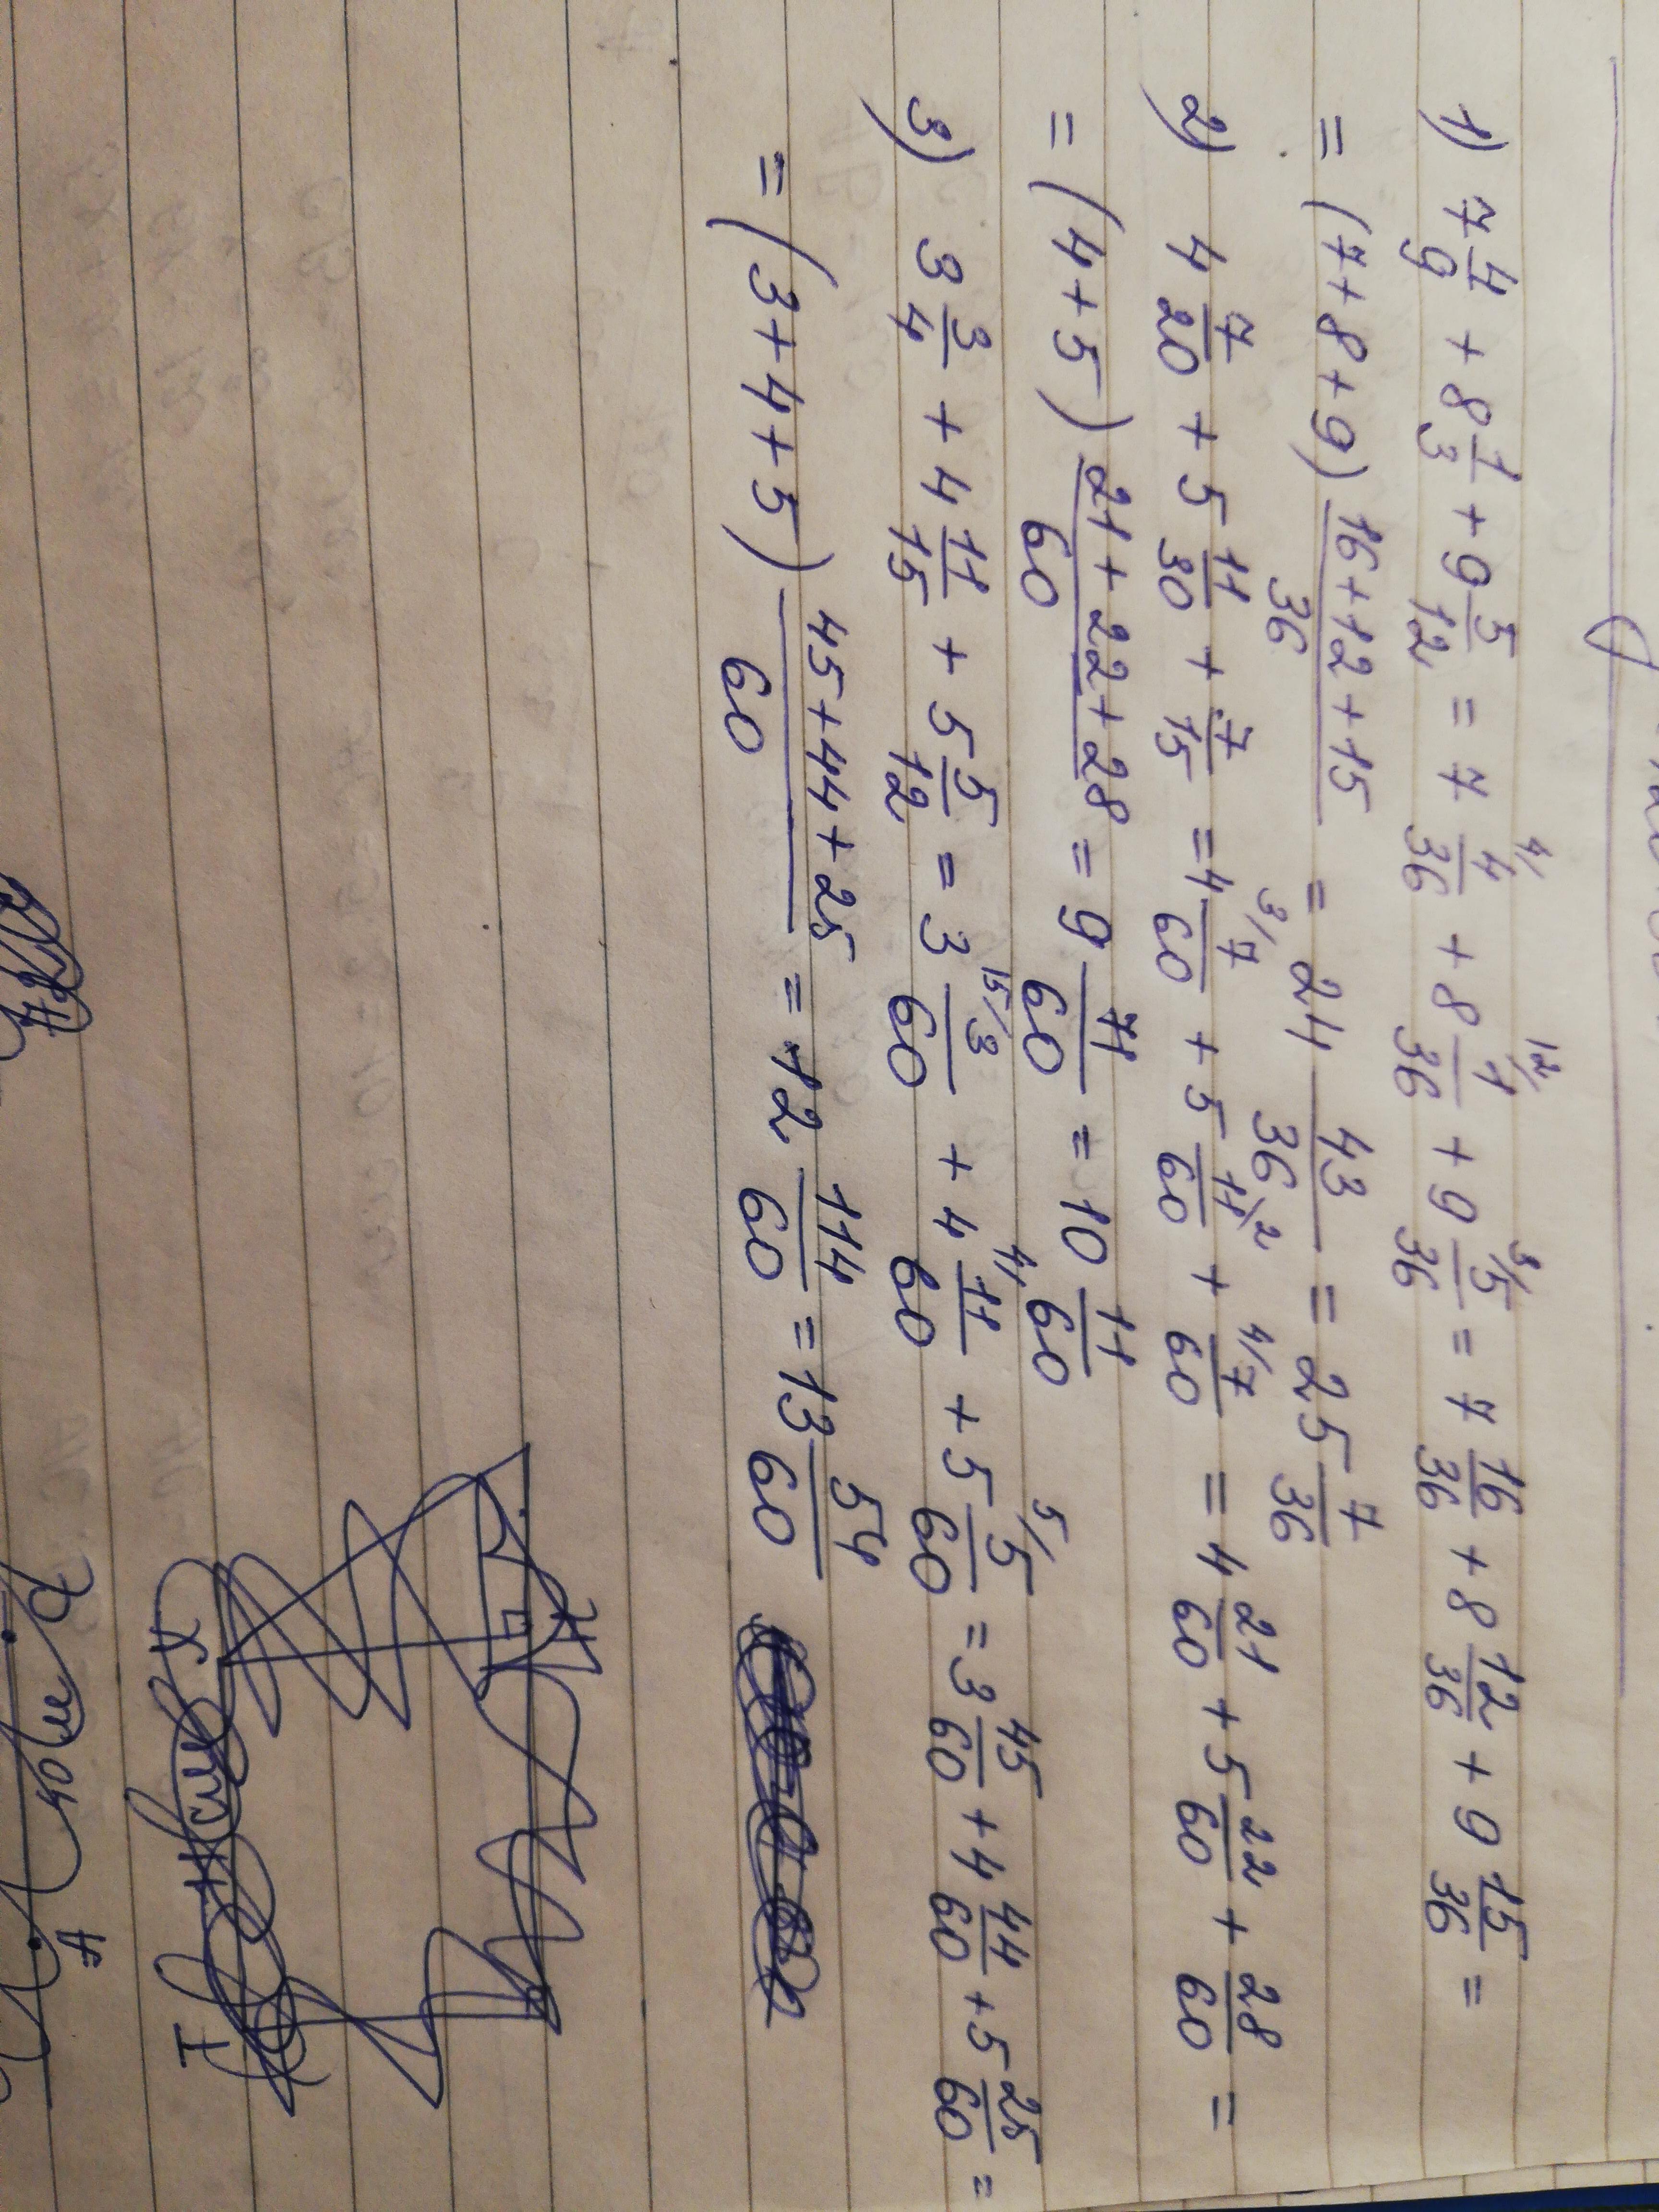 1) 7 4/9 + 8 1/3 + 9 5/12 = 7 4/ 4/36 + 8 12/ 1/36 + 9 3/ 5/36 = 7 16/36 + 8 12/36 + 9 15/36 =
= (7+8+9) 16+12+15/36 = 24 43/36 = 25 7/36
2) 4 7/20 + 5 11/30 + 7/15 = 4 3/ 7/60 + 5 11/60 /2 + 4/ 7/60 = 4 21/60 + 5 22/60 + 28/60 =
= (4+5) 21+22+28/60 = 9 71/60 = 10 11/60
3) 3 3/4 + 4 11/15 + 5 5/12 = 3 15/ 3/60 + 4 4/ 11/60 + 5 5/ 5/60 = 3 45/60 + 4 44/60 + 5 25/60 =
= (3+4+5) 45+44+25/60 = 12 114/60 = 13 54/60